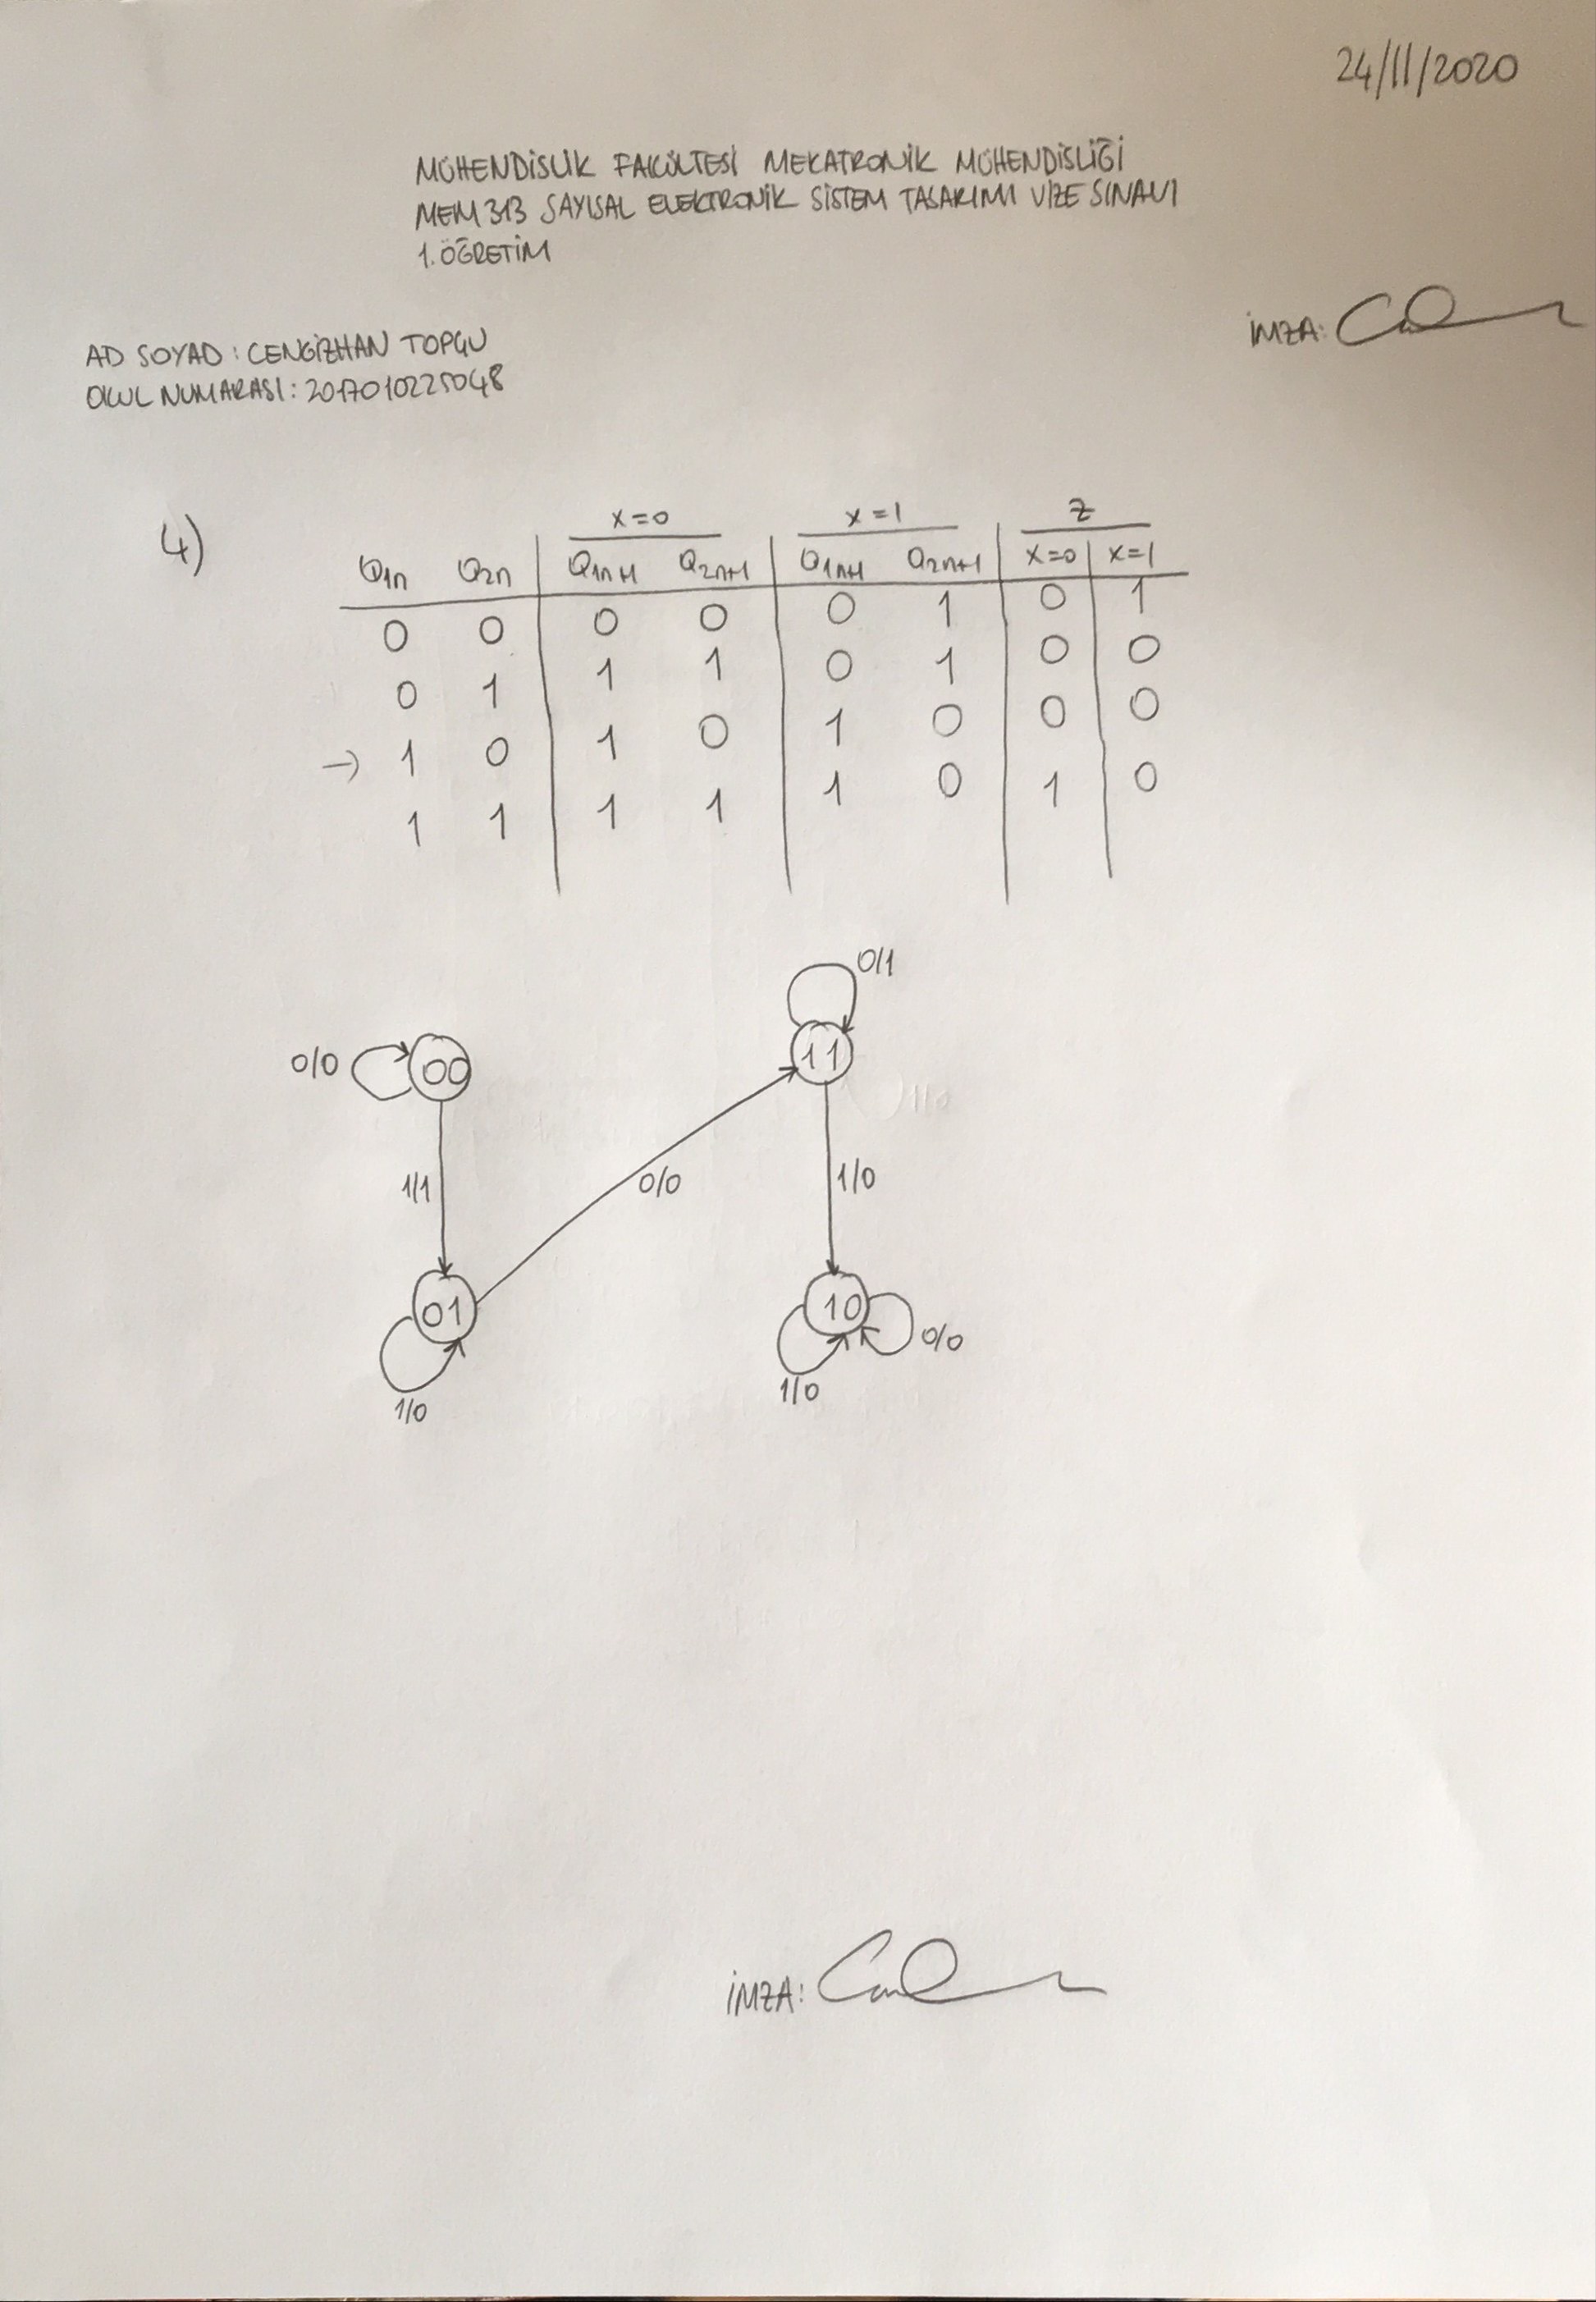 24/11/2020
MÜHENDİSLİK FAKÜLTESİ MEKATRONİK MÜHENDİSLİĞİ
MEM 313 SAYISAL ELEKTRONİK SİSTEM TASARIMI VİZE SINAVI
1. ÖĞRETİM
İMZA:
AD SOYAD : CENGİZHAN TOPÇU
OKUL NUMARASI : 2017010225048
4)
x=0 x=1 z
Q1n Q2n Q1n+1 Q2n+1 Q1n+1 Q2n+1 x=0 x=1
0 0 0 0 0 1 0 1
0 1 1 1 0 1 0 0
→ 1 0 1 0 1 0 0 0
1 1 1 1 1 0 1 0
0/1
0/0 00 11
1/1 0/0 1/0
01 10
0/0
1/0 1/0
İMZA: